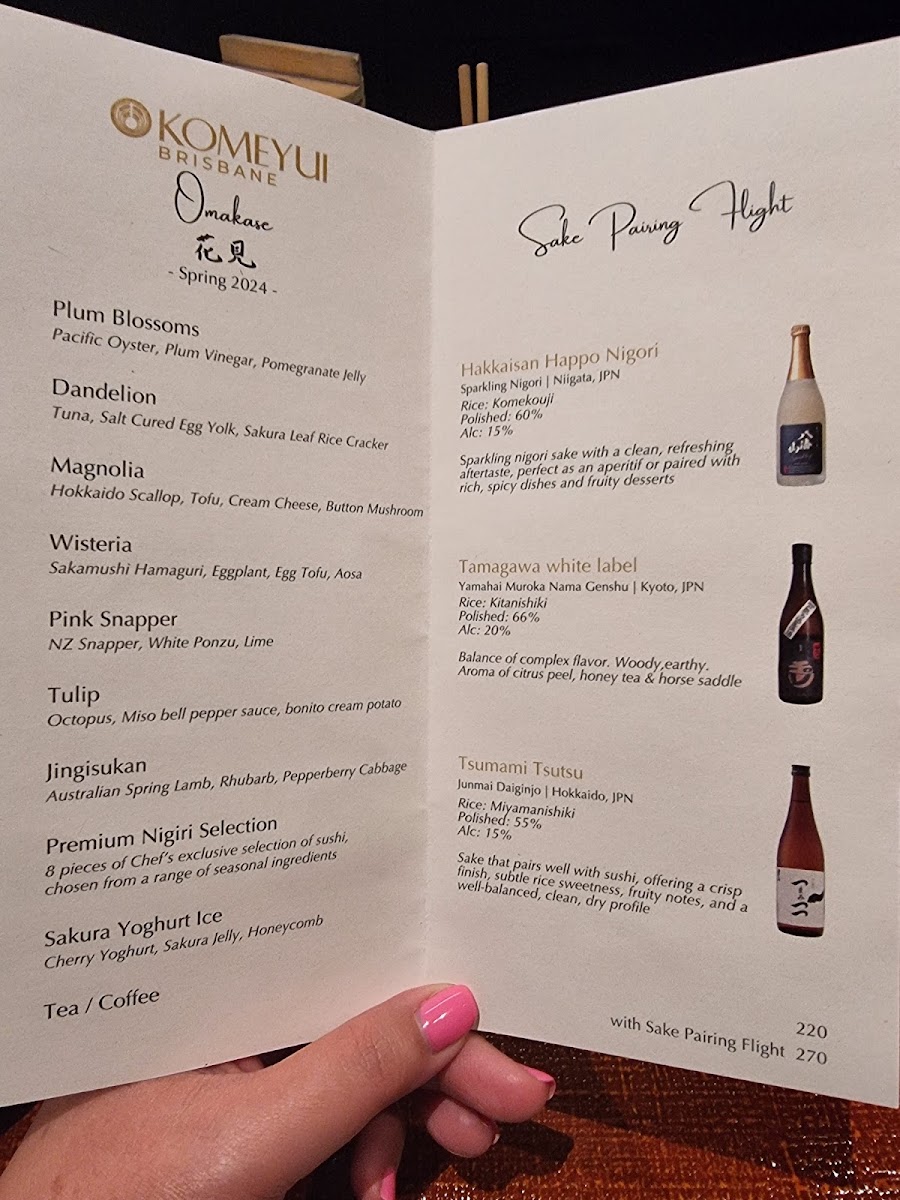 KOMEYUI
BRISBANE
Omakase
花見
- Spring 2024 -
Plum Blossoms
Pacific Oyster, Plum Vinegar, Pomegranate Jelly
Dandelion
Tuna, Salt Cured Egg Yolk, Sakura Leaf Rice Cracker
Magnolia
Hokkaido Scallop, Tofu, Cream Cheese, Button Mushroom
Wisteria
Sakamushi Hamaguri, Eggplant, Egg Tofu, Aosa
Pink Snapper
NZ Snapper, White Ponzu, Lime
Tulip
Octopus, Miso bell pepper sauce, bonito cream potato
Jingisukan
Australian Spring Lamb, Rhubarb, Pepperberry Cabbage
Premium Nigiri Selection
8 pieces of Chef's exclusive selection of sushi,
chosen from a range of seasonal ingredients
Sakura Yoghurt Ice
Cherry Yoghurt, Sakura Jelly, Honeycomb
Tea / Coffee
Sake Pairing Flight
Hakkaisan Happo Nigori
Sparkling Nigori | Niigata, JPN
Rice: Komekouji
Polished: 60%
Alc: 15%
Sparkling nigori sake with a clean, refreshing
aftertaste, perfect as an aperitif or paired with
rich, spicy dishes and fruity desserts
Tamagawa white label
Yamahai Muroka Nama Genshu | Kyoto, JPN
Rice: Kitanishiki
Polished: 66%
Alc: 20%
Balance of complex flavor. Woody,earthy.
Aroma of citrus peel, honey tea & horse saddle
Tsumami Tsutsu
Junmai Daiginjo | Hokkaido, JPN
Rice: Miyamanishiki
Polished: 55%
Alc: 15%
Sake that pairs well with sushi, offering a crisp
finish, subtle rice sweetness, fruity notes, and a
well-balanced, clean, dry profile
220
with Sake Pairing Flight 270